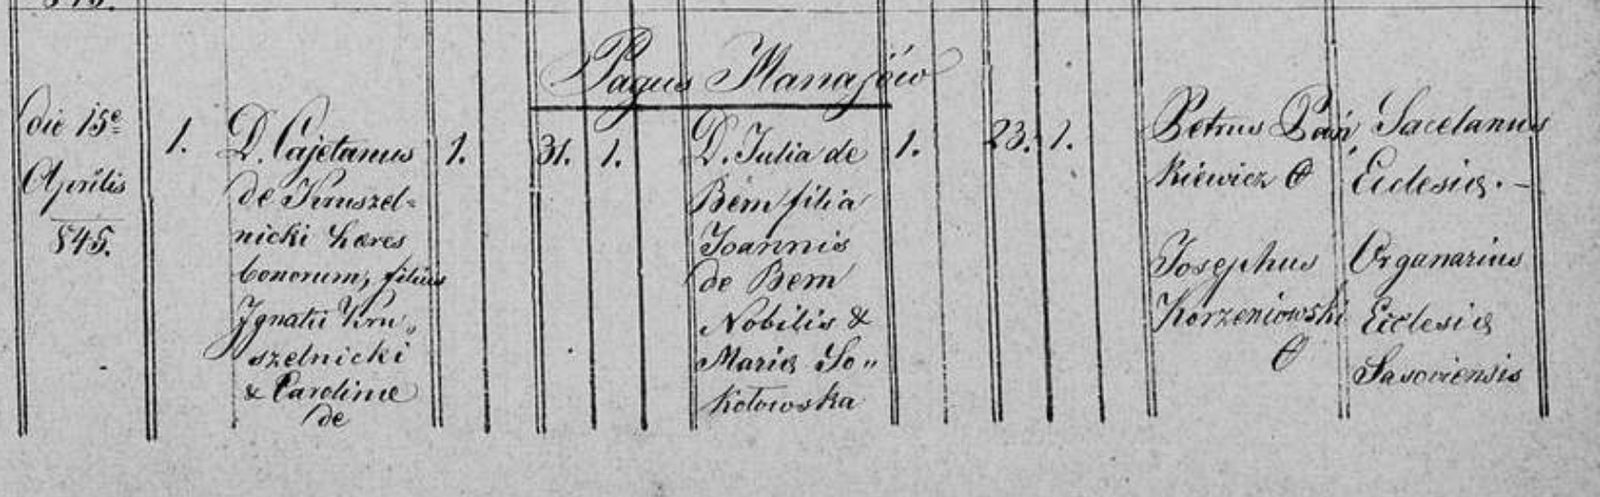 Pagus Manajów
die 15e
Aprilis
845.
1.
D. Cajetanus
de Kruszel=
nicki haeres
bonorum, filius
Ignatii Kru„
szelnicki
& Carolinae
de
1.
31.
1.
D. Julia de
Bem filia
Joannis
de Bem
Nobilis &
Mariae So„
kołowska
1.
23.
1.
Petrus Pań„
kiewicz
Josephus
Korzeniowski
Sacelanus
Ecclesiae. –
Organarius
Ecclesiae
Sasoviensis